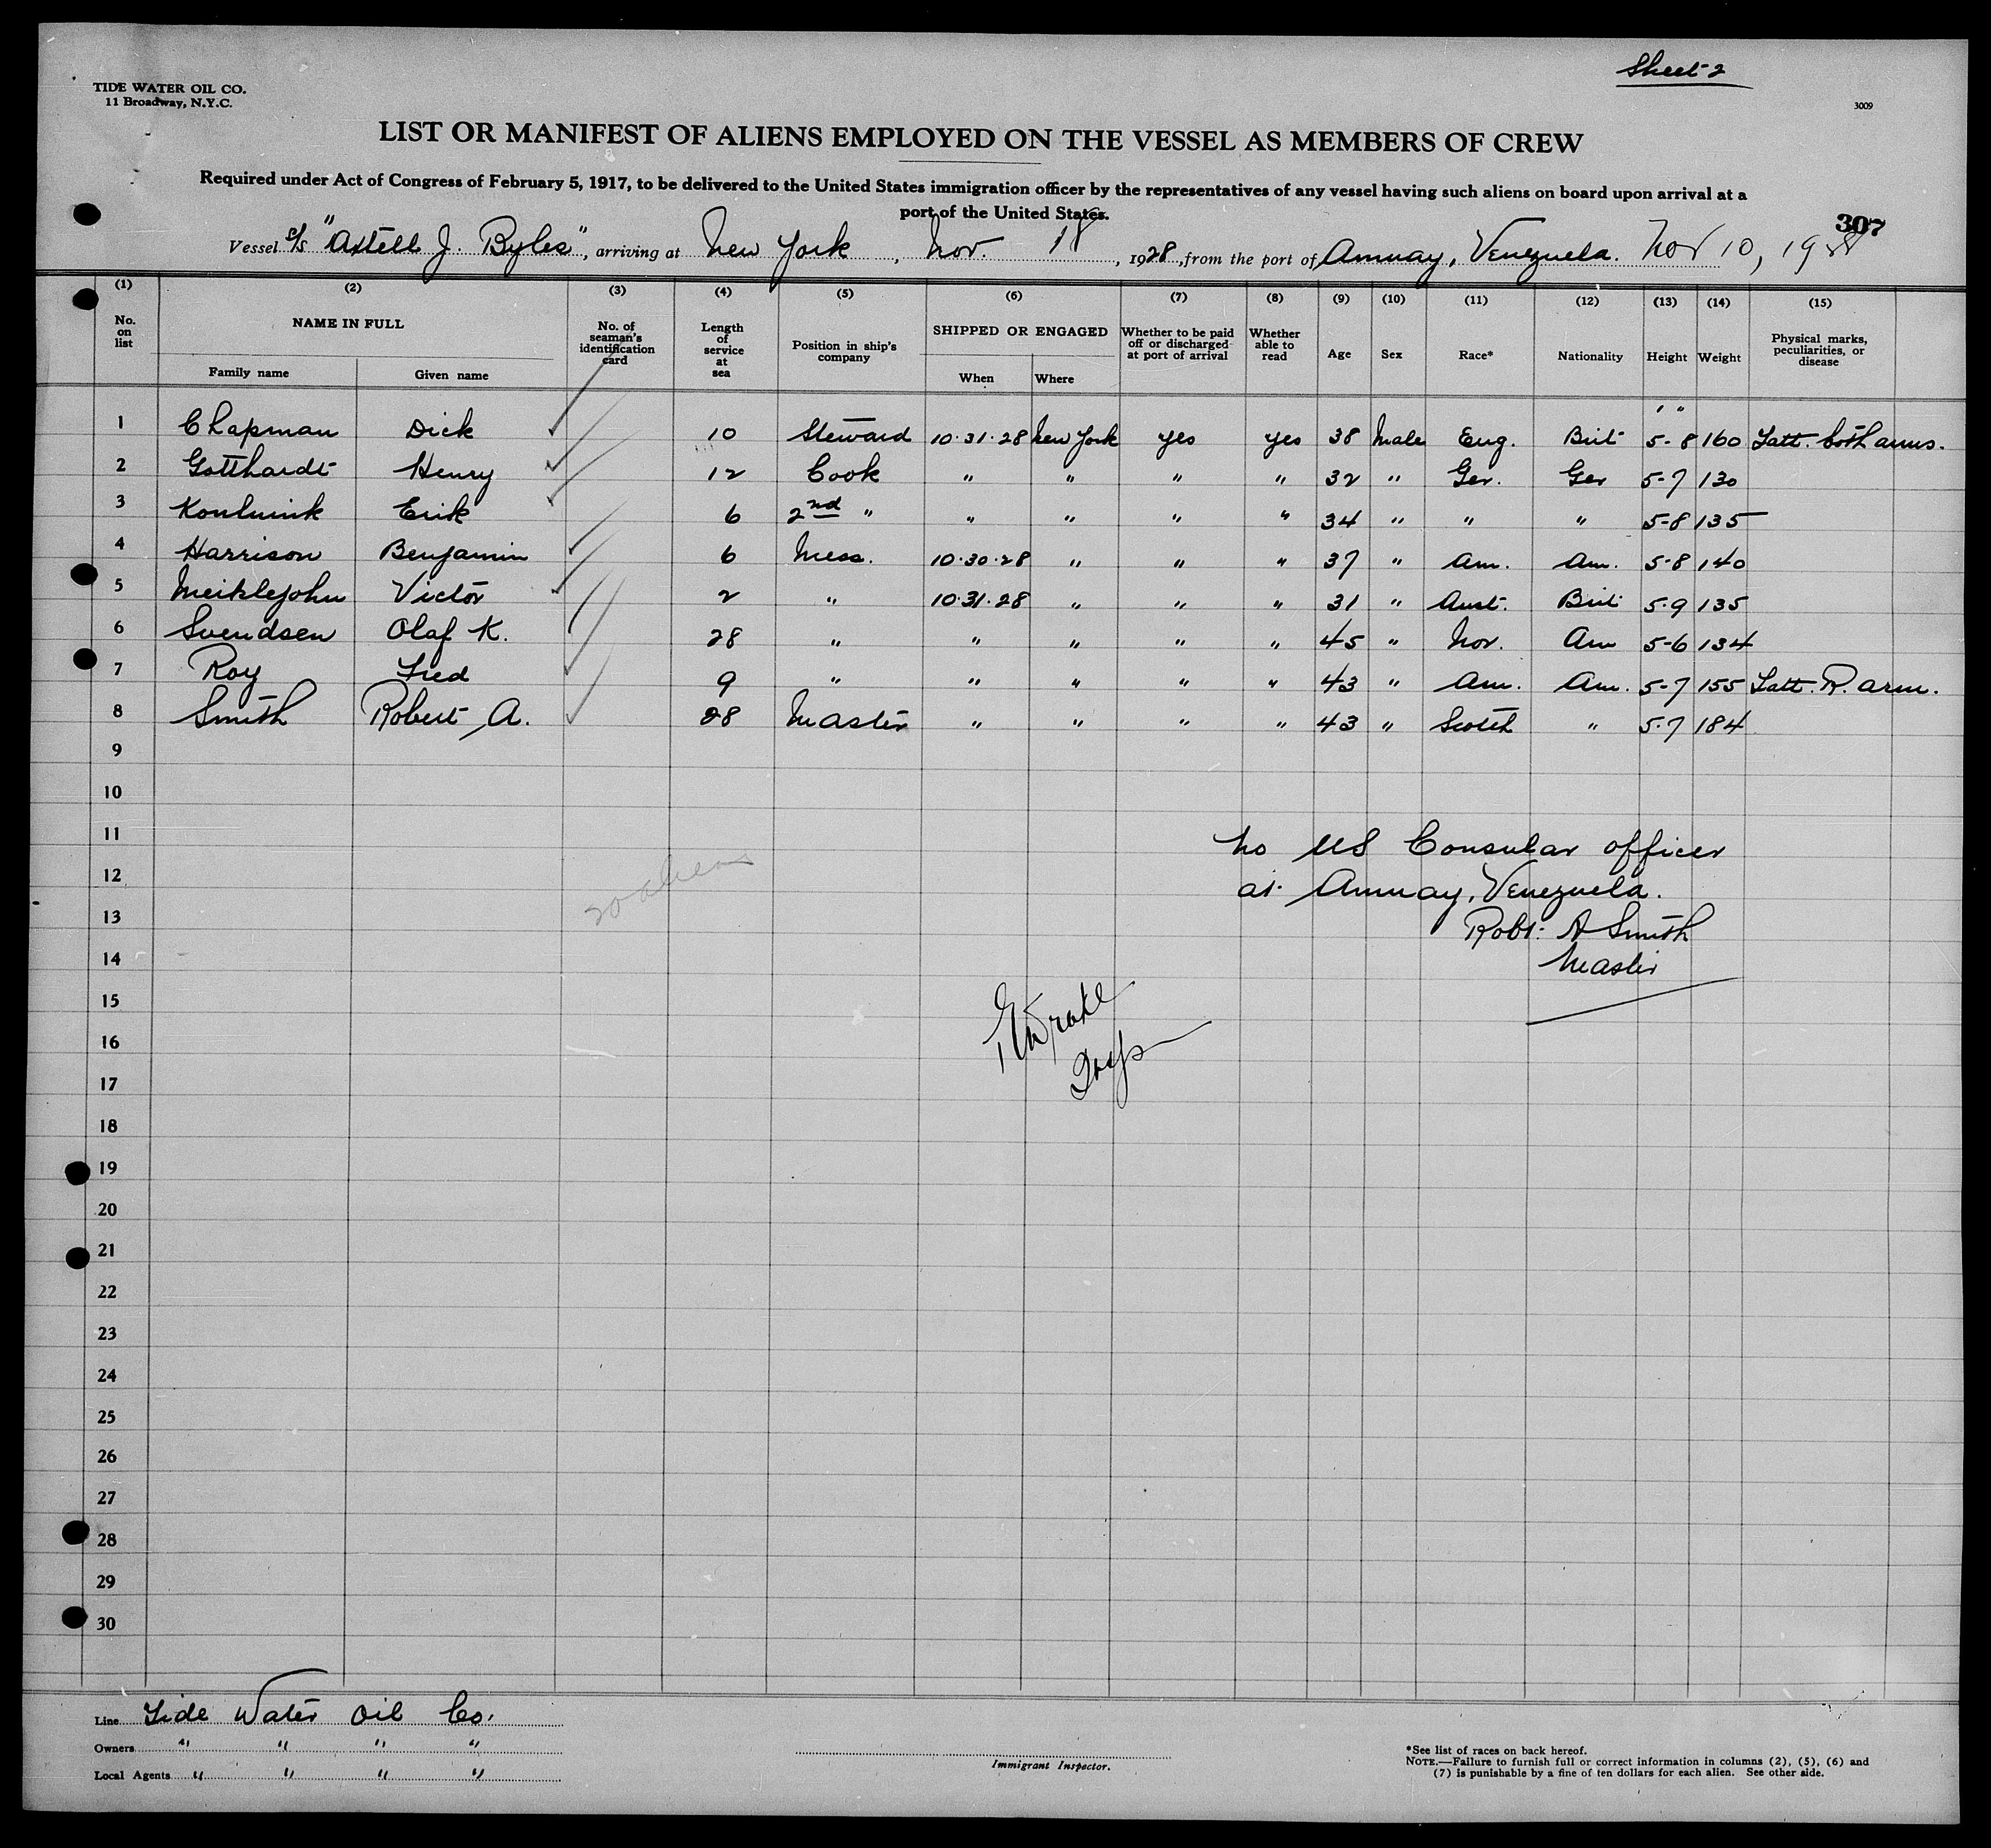 Sheet 2
TIDE WATER OIL CO.
11 Broadway, N.Y.C.
3009
LIST OR MANIFEST OF ALIENS EMPLOYED ON THE VESSEL AS MEMBERS OF CREW
Required under Act of Congress of February 5, 1917, to be delivered to the United States immigration officer by the representatives of any vessel having such aliens on board upon arrival at a
port of the United States.
307
Vessel S/S "Axtell J. Byles", arriving at New York, Nov. 18, 1928, from the port of Amuay, Venezuela. Nov 10, 1928
(1) (2) (3) (4) (5) (6) (7) (8) (9) (10) (11) (12) (13) (14) (15)
No. on list NAME IN FULL Family name Given name No. of seaman's identification card Length of service at sea Position in ship's company SHIPPED OR ENGAGED When Where Whether to be paid off or discharged at port of arrival Whether able to read Age Sex Race* Nationality Height Weight Physical marks, peculiarities, or disease
1 Chapman Dick 10 Steward 10-31-28 New York yes yes 38 Male Eng. Brit 5-8 160 Tatt. both arms.
2 Gotthardt Henry 12 Cook " " " " 32 " Ger. Ger 5-7 130
3 Erik 6 2nd " " " " " 34 " " " 5-8 135
4 Harrison Benjamin 6 Mess. 10-30-28 " " " 37 " Am. Am. 5-8 140
5 Meiklejohn Victor 2 " 10-31-28 " " " 31 " Aust. Brit 5-9 135
6 Svendsen Olaf K. 28 " " " " " 45 " Nor. Am 5-6 134
7 Roy Fred 9 " " " " " 43 " Am. Am. 5-7 155 Tatt. R. arm.
8 Smith Robert A. 28 Master " " " " 43 " Scotch " 5-7 184
9
10
11
12
13
14
15
16
17
18
19
20
21
22
23
24
25
26
27
28
29
30
No US Consular officer
at Amuay, Venezuela.
Robt. A Smith
Master
Line Tide Water Oil Co.
Owners " " " "
Local Agents " " " "
Immigrant Inspector.
*See list of races on back hereof.
NOTE.—Failure to furnish full or correct information in columns (2), (5), (6) and
(7) is punishable by a fine of ten dollars for each alien. See other side.